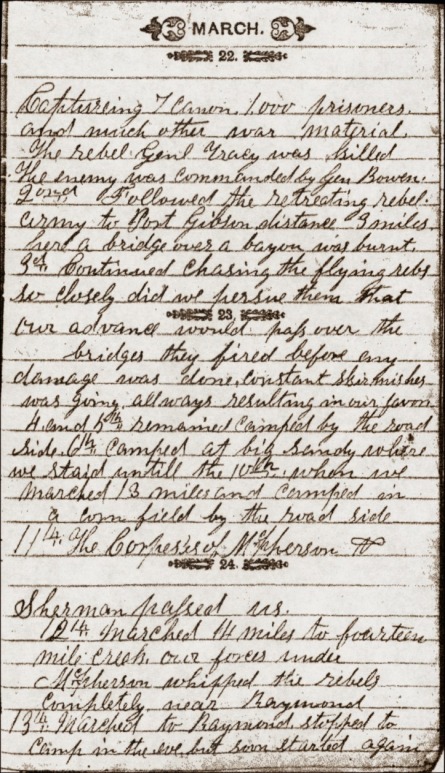 MARCH.
22.
Captureing 7 Canon, 1.000 prisoners.
and much other war material.
The rebel Genl Tracy was killed
The enemy was commanded by Gen Bowen.
2ond Followed the retreating rebel
army to Port Gibson distance 3 miles
here a bridge over a bayou was burnt.
3rd Continued chasing the flying rebs
so closely did we persue them that
23.
our advance would pass over the
bridges they fired before any
damage was done, constant skirmishes
was going, allways resulting in our favor
4 and 5th remained camped by the road
side. 6th camped at big sandy where
we staid untill the 10th, when we
marched 13 miles and camped in
a corn field by the road side
11th The Corpes's of McPherson &
24.
Sherman passed us.
12th Marched 14 miles to fourteen
mile creek, our forces under
McPherson whipped the rebels
completely near Raymond
13th Marched to Raymond stopped to
camp in the eve but soon started again